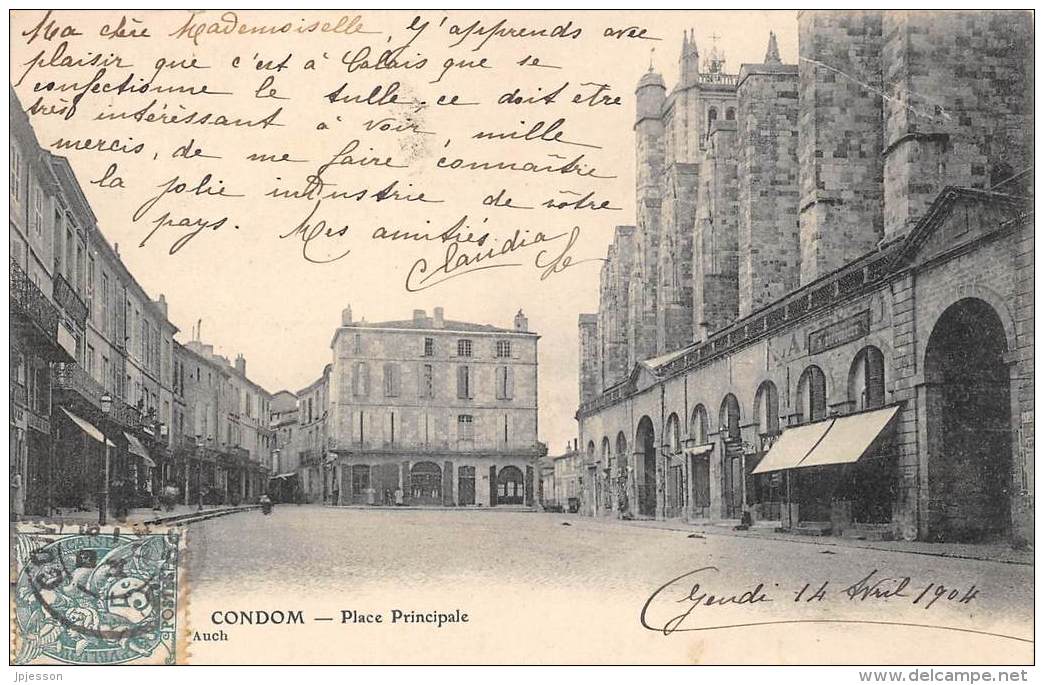 Ma chère Mademoiselle, J'apprends avec
plaisir que c'est à Calais que se
confectionne le tulle. ce doit être
très intéressant à voir, mille
mercis, de me faire connaître
la jolie industrie de vôtre
pays. Mes amitiés
Claudia
MA
CONDOM — Place Principale
Auch
Jendi 14 Avril 1904
POSTES
jpjesson
www.delcampe.net